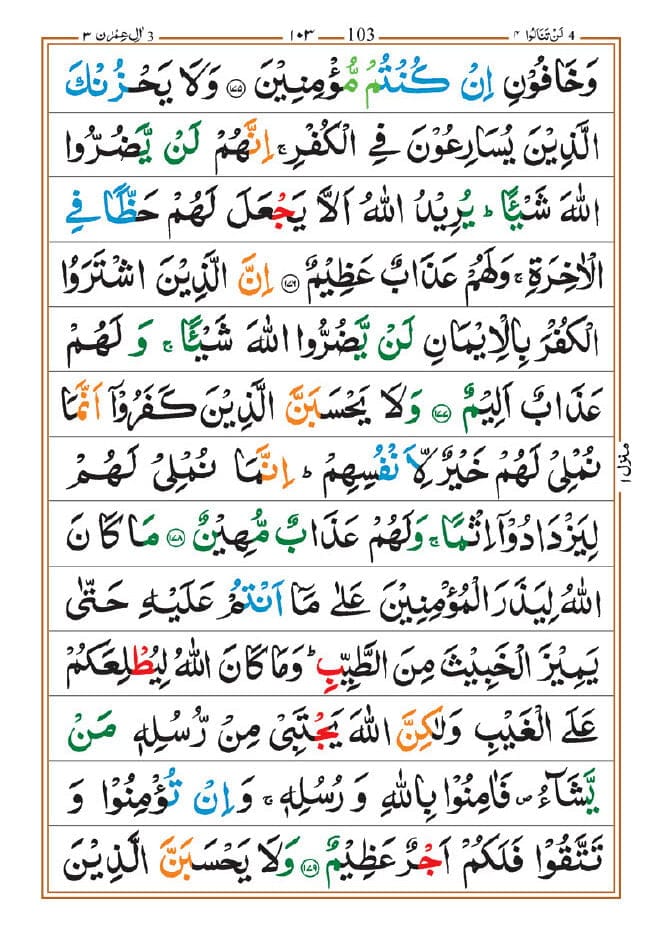 4 لَنْ تَنَالُوا ۴ 103 ١٠٣ 3 اٰلِ عِمْرٰن ٣
وَخَافُوْنِ اِنْ كُنْتُمْ مُّؤْمِنِيْنَ ﴿۱۷۵﴾ وَلَا يَحْزُنْكَ
الَّذِيْنَ يُسَارِعُوْنَ فِي الْكُفْرِ ۚ اِنَّهُمْ لَنْ يَّضُرُّوا
اللّٰهَ شَيْـًٔا ؕ يُرِيْدُ اللّٰهُ اَلَّا يَجْعَلَ لَهُمْ حَظًّا فِي
الْاٰخِرَةِ ۚ وَلَهُمْ عَذَابٌ عَظِيْمٌ ﴿۱۷۶﴾ اِنَّ الَّذِيْنَ اشْتَرَوُا
الْكُفْرَ بِالْاِيْمَانِ لَنْ يَّضُرُّوا اللّٰهَ شَيْـًٔا ۚ وَ لَهُمْ
عَذَابٌ اَلِيْمٌ ﴿۱۷۷﴾ وَلَا يَحْسَبَنَّ الَّذِيْنَ كَفَرُوْۤا اَنَّمَا
نُمْلِيْ لَهُمْ خَيْرٌ لِّاَنْفُسِهِمْ ؕ اِنَّمَا نُمْلِيْ لَهُمْ
لِيَزْدَادُوْۤا اِثْمًا ۚ وَلَهُمْ عَذَابٌ مُّهِيْنٌ ﴿۱۷۸﴾ مَا كَانَ
اللّٰهُ لِيَذَرَ الْمُؤْمِنِيْنَ عَلٰى مَاۤ اَنْتُمْ عَلَيْهِ حَتّٰى
يَمِيْزَ الْخَبِيْثَ مِنَ الطَّيِّبِ ؕ وَمَا كَانَ اللّٰهُ لِيُطْلِعَكُمْ
عَلَى الْغَيْبِ وَلٰكِنَّ اللّٰهَ يَجْتَبِيْ مِنْ رُّسُلِهٖ مَنْ
يَّشَآءُ ۪ فَاٰمِنُوْا بِاللّٰهِ وَ رُسُلِهٖ ۚ وَ اِنْ تُؤْمِنُوْا وَ
تَتَّقُوْا فَلَكُمْ اَجْرٌ عَظِيْمٌ ﴿۱۷۹﴾ وَلَا يَحْسَبَنَّ الَّذِيْنَ
منزل ۱